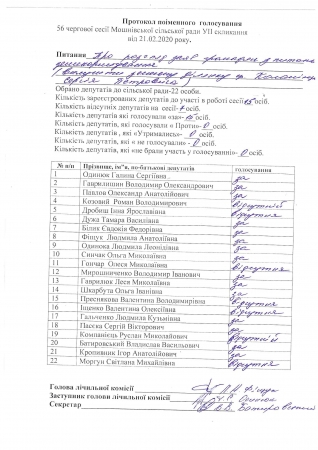 Протокол поіменного голосування
56 чергової сесії Мошнівської сільської ради УП скликання
від 21.02.2020 року.
Питання Про розгляд заяв громадян з питань
Сергія Петровича
Обрано депутатів до сільської ради-22 особи.
Кількість зареєстрованих депутатів до участі в роботі сесії 15 осіб.
Кількість відсутніх депутатів на сесії- осіб.
Кількість депутатів які голосували «за» осіб.
Кількість депутатів, які голосували « Проти» 0 осіб.
Кількість депутатів , які «Утримались» 0 осіб.
Кількість депутатів, які « не голосували» - 0 осіб.
Кількість депутатів, які «не брали участь у голосуванні» 0 осіб.
№ п/п Прізвище, ім"я, по-батькові депутатів голосування
1 Одинюк Галина Сергіївна за
2 Гаврилишин Володимир Олександрович за
3 Павлов Олександр Анатолійович за
4 Козовий Роман Володимирович відсутній
5 Дробиш Інна Ярославівна відсутня
6 Дужа Тамара Василівна за
7 Білик Євдокія Федорівна за
8 Фіщук Людмила Анатоліївна за
9 Одинока Людмила Леонідівна за
10 Синчак Ольга Миколаївна за
11 Гончар Олеся Миколаївна відсутня
12 Мирошниченко Володимир Іванович за
13 Гаврилюк Леся Миколаївна за
14 Шкарбута Ольга Іванівна за
15 Преснякова Валентина Володимирівна відсутня
16 Іщенко Валентина Олексіївна відсутня
17 Гальченко Людмила Кузьмівна за
18 Пасєка Сергій Вікторович за
19 Компанієць Руслан Миколайович відсутній
20 Батировський Владислав Васильович за
21 Кропивник Ігор Анатолійович за
22 Моргун Світлана Михайлівна відсутня
Голова лічильної комісії Л.А. Фіщук
Заступник голови лічильної комісії
Секретар В.В. Батировський